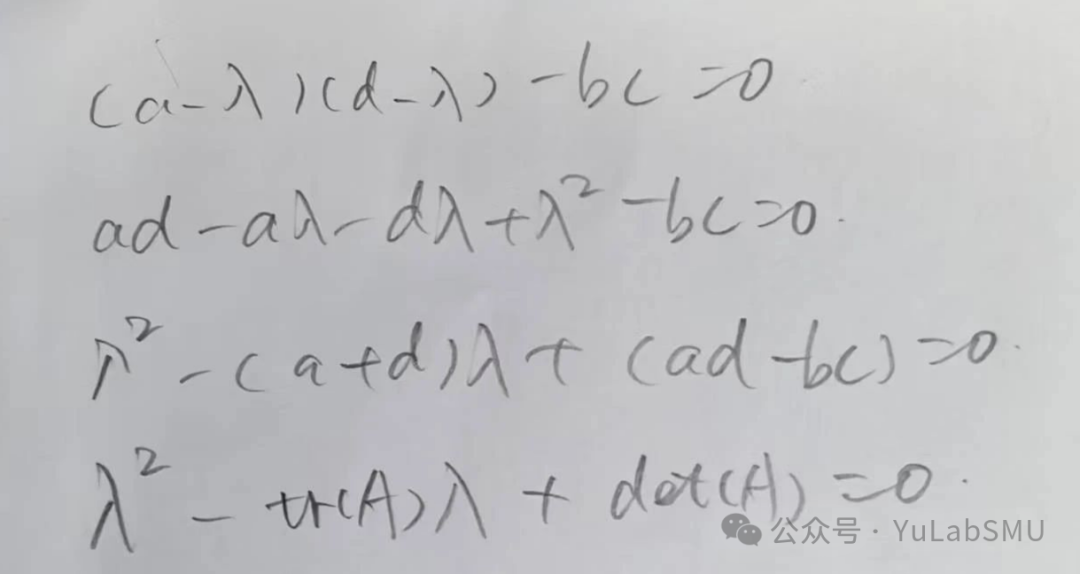 (a-λ)(d-λ)-bc=0
ad-aλ-dλ+λ²-bc=0.
λ²-(a+d)λ+(ad-bc)=0.
λ²-tr(A)λ+det(A)=0.
公众号·YuLabSMU